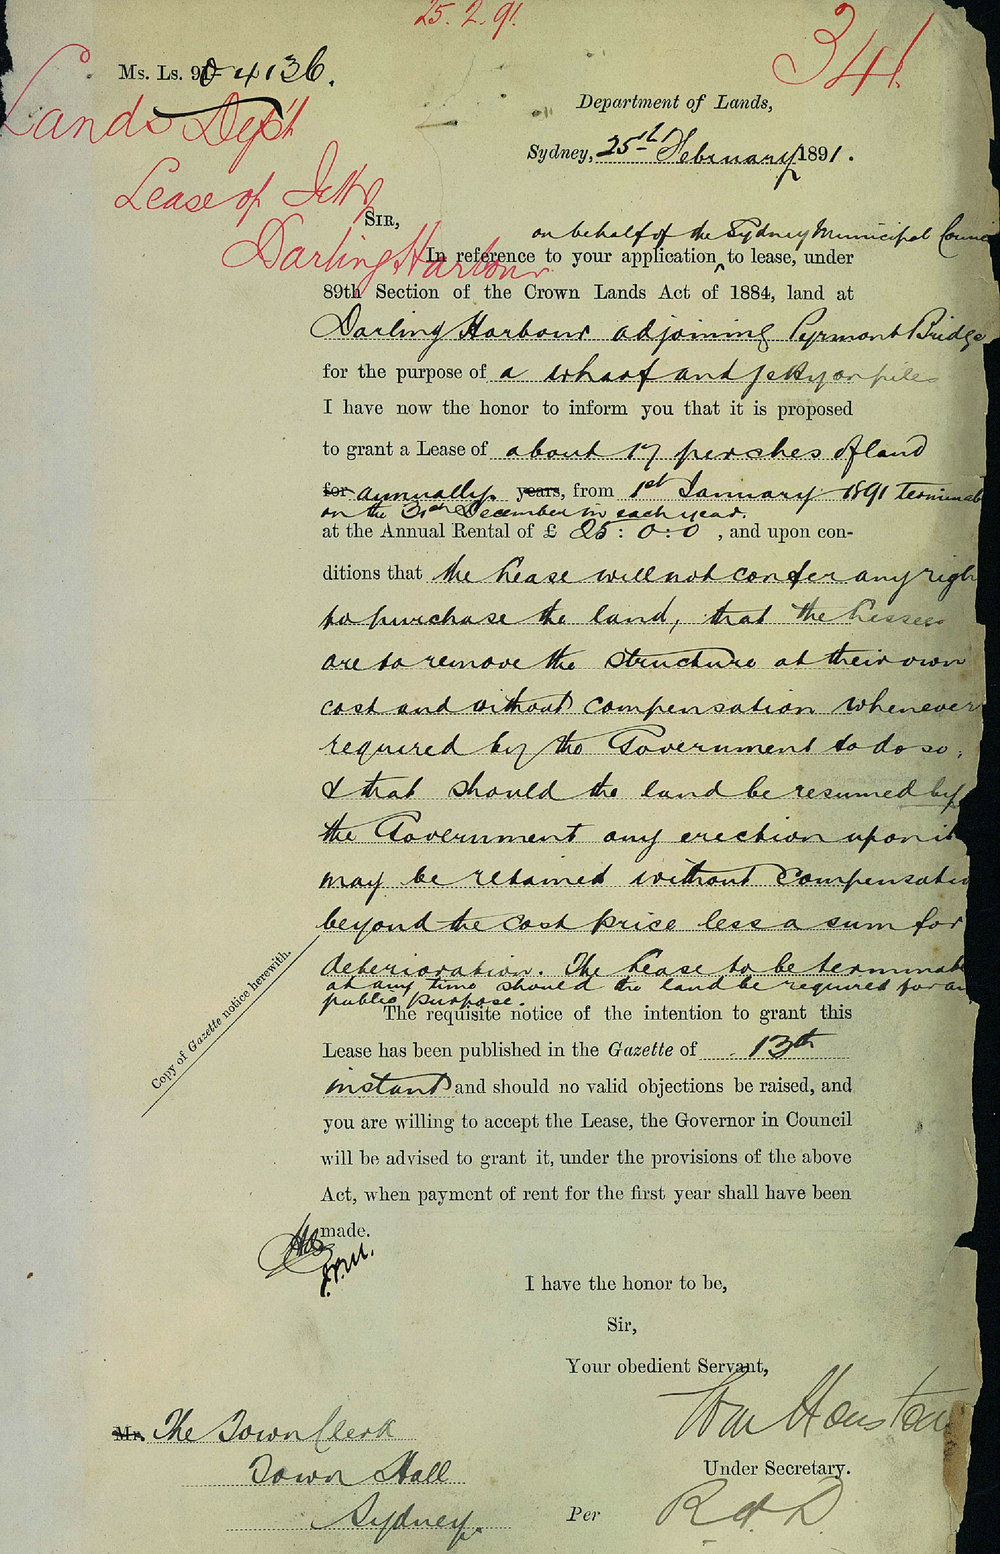 25. 2. 91.
341
Ms. Ls. 91- 4136.
Lands Dep't
Lease of Jetty
Darling Harbour
Department of Lands,
Sydney, 25th February 1891.
SIR,
on behalf of the Sydney Municipal Counc
In reference to your application ^ to lease, under
89th Section of the Crown Lands Act of 1884, land at
Darling Harbour adjoining Pyrmont Bridge
for the purpose of a wharf and jetty on piles
I have now the honor to inform you that it is proposed
to grant a Lease of about 17 perches of land
for annually years, from 1st January 1891 terminat
on the 31st December in each year.
at the Annual Rental of £ 25 : 0 : 0 , and upon con-
ditions that the Lease will not confer any righ
to purchase the land, that the Lessees
are to remove the structure at their own
cost and without compensation whenever
required by the Government to do so;
& that should the land be resumed by
the Government any erection upon it
may be retained without compensatio
beyond the cost price less a sum for
deterioration. The Lease to be terminat
at any time should the land be required for an
public purpose.
Copy of Gazette notice herewith.
The requisite notice of the intention to grant this
Lease has been published in the Gazette of 13th
instant and should no valid objections be raised, and
you are willing to accept the Lease, the Governor in Council
will be advised to grant it, under the provisions of the above
Act, when payment of rent for the first year shall have been
made.
I have the honor to be,
Sir,
Your obedient Servant,
Wm Houston
Under Secretary.
Mr. The Town Clerk
Town Hall
Sydney.
Per